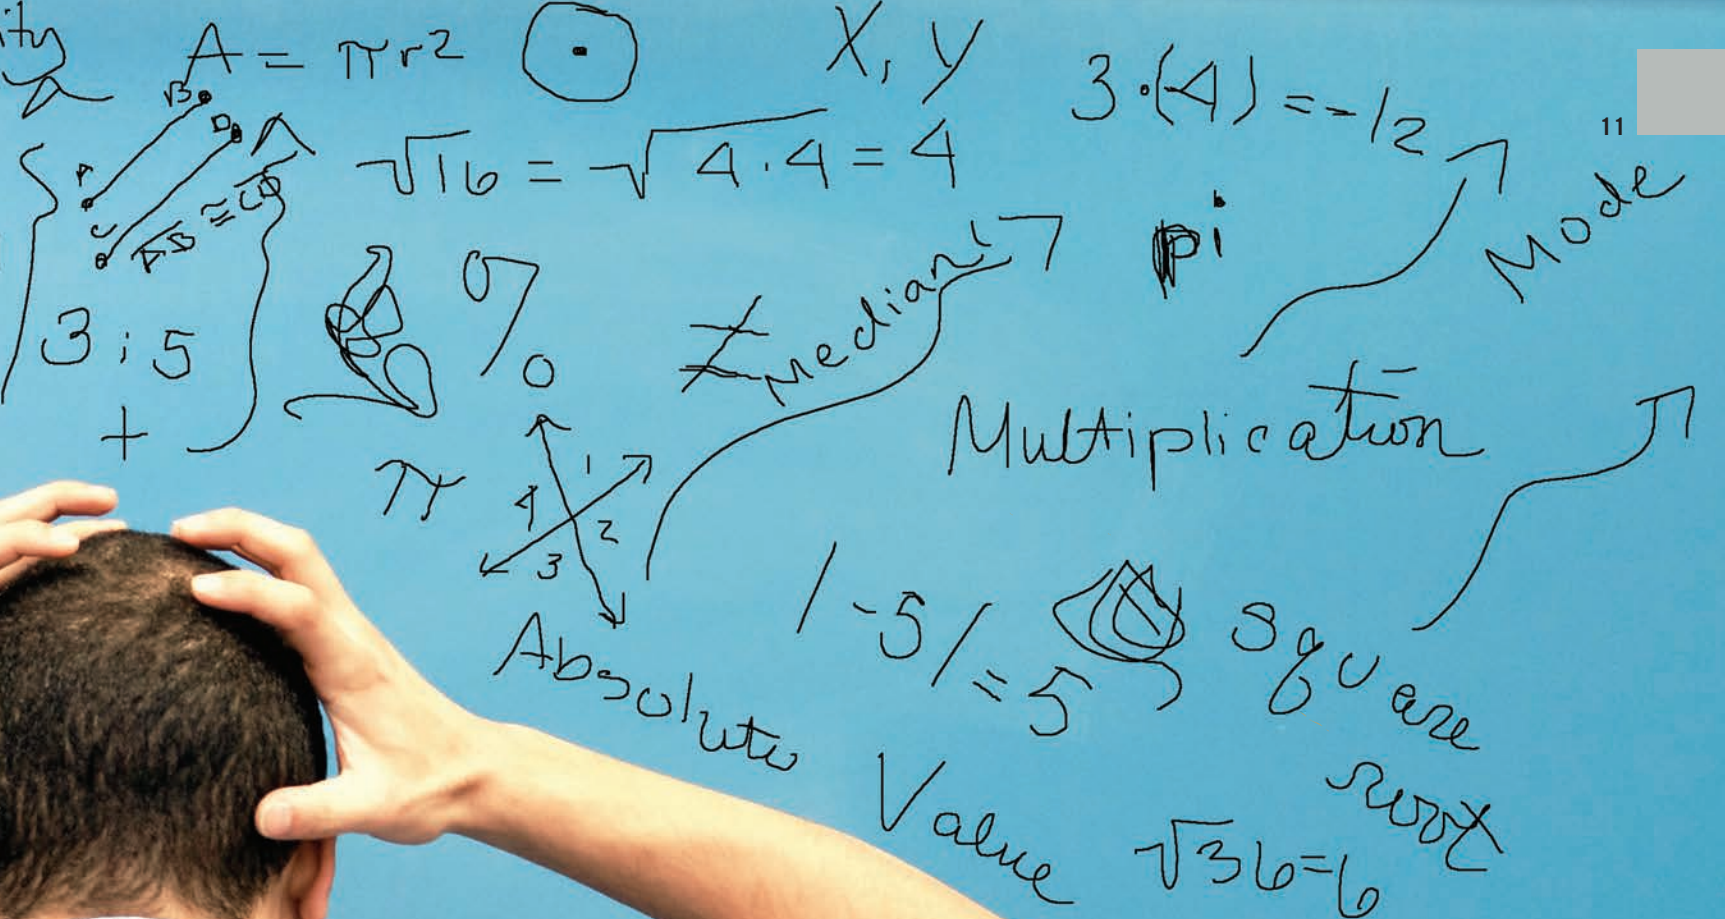 ity
A = πr²
X, Y
3·(-4) = -12
11
B
D
A
C
AB ≅ CD
√16 = √4·4 = 4
pi
Mode
3:5
%
≠
Median
+
Multiplication
π
1
4
2
3
|-5| = 5
Absolute Value
Square root
√36=6